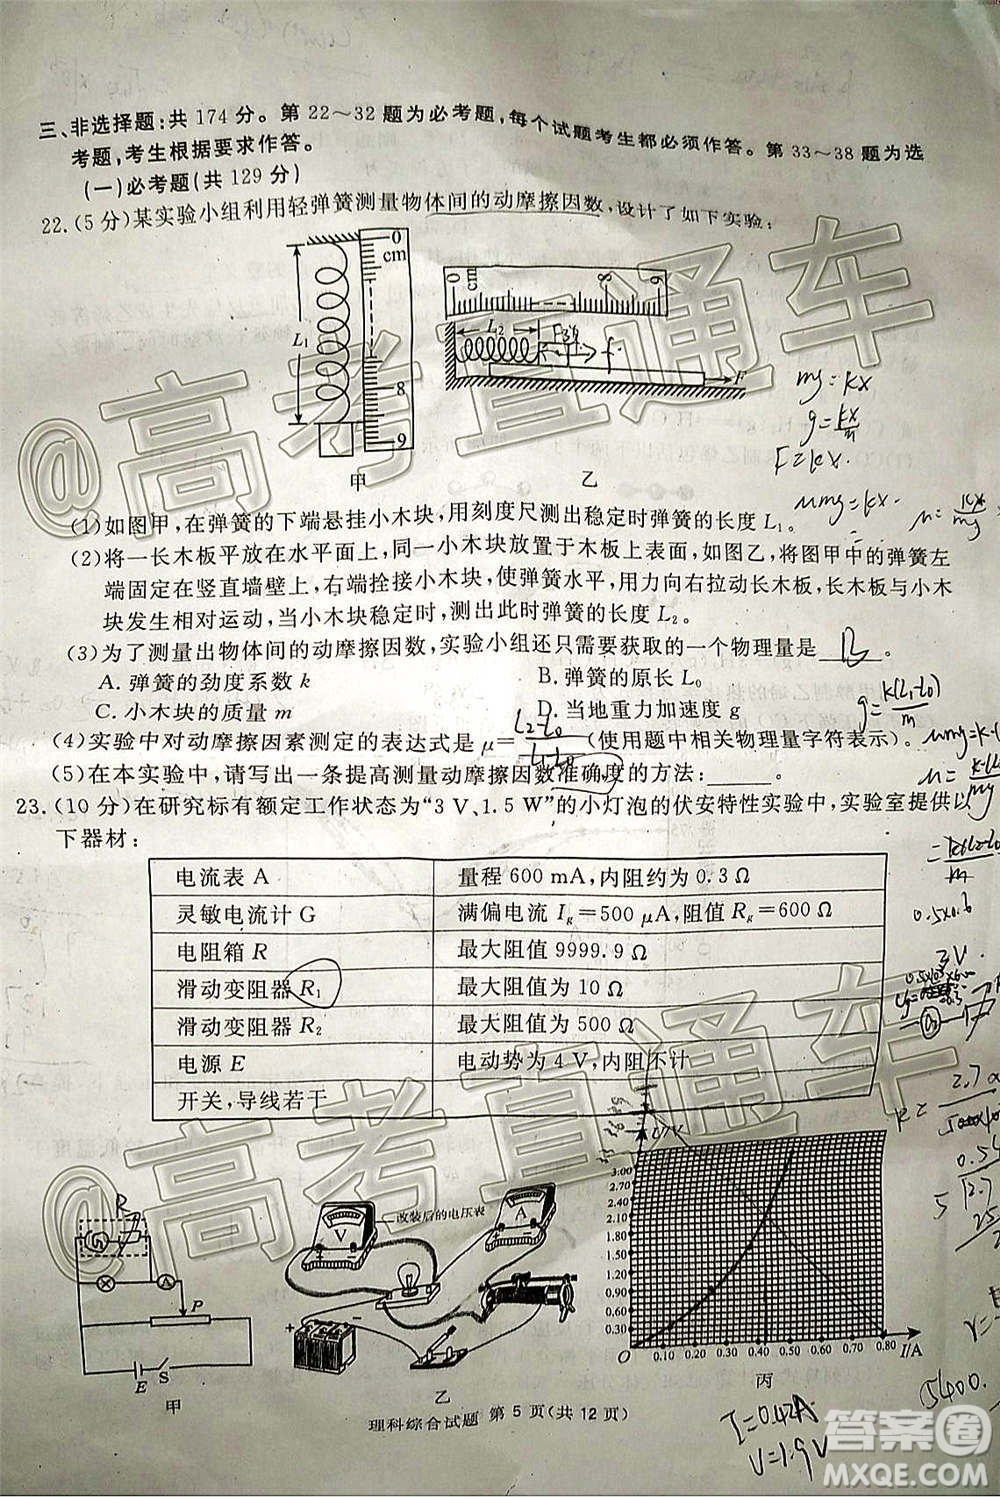 三、非选择题:共174分。第22～32题为必考题,每个试题考生都必须作答。第33～38题为选
考题,考生根据要求作答。
(一)必考题(共129分)
22.(5分)某实验小组利用轻弹簧测量物体间的动摩擦因数,设计了如下实验:
0
cm
L₁
8
9
甲
0
cm
8
9
L₂
F弹
f
F
乙
mg=kx
g=kx/m
F=kx.
μmg=kx.
(1)如图甲,在弹簧的下端悬挂小木块,用刻度尺测出稳定时弹簧的长度 L₁。
(2)将一长木板平放在水平面上,同一小木块放置于木板上表面,如图乙,将图甲中的弹簧左
端固定在竖直墙壁上,右端拴接小木块,使弹簧水平,用力向右拉动长木板,长木板与小木
块发生相对运动,当小木块稳定时,测出此时弹簧的长度 L₂。
(3)为了测量出物体间的动摩擦因数,实验小组还只需要获取的一个物理量是 B 。
A. 弹簧的劲度系数 k
B. 弹簧的原长 L₀
C. 小木块的质量 m
D. 当地重力加速度 g
g=k(L₁-L₀)/m
(4)实验中对动摩擦因素测定的表达式是 μ= L₂-L₀/L₁-L₀ (使用题中相关物理量字符表示)。
(5)在本实验中,请写出一条提高测量动摩擦因数准确度的方法:______。
23.(10分)在研究标有额定工作状态为“3 V、1.5 W”的小灯泡的伏安特性实验中,实验室提供以
下器材:
电流表 A 量程 600 mA,内阻约为 0.3 Ω
灵敏电流计 G 满偏电流 I_g=500 μA,阻值 R_g=600 Ω
电阻箱 R 最大阻值 9999.9 Ω
滑动变阻器 R₁ 最大阻值为 10 Ω
滑动变阻器 R₂ 最大阻值为 500 Ω
电源 E 电动势为 4 V,内阻不计
开关,导线若干
0.5×0.6
3V
R
G
A
P
E
S
甲
改装后的电压表
V
A
乙
U/V
3.00
2.70
2.40
2.10
1.80
1.50
1.20
0.90
0.60
0.30
O
0.10 0.20 0.30 0.40 0.50 0.60 0.70 0.80 I/A
丙
I=0.42A
V=1.9V
5400.
理科综合试题 第 5 页(共 12 页)
@高考直通车
@高考直通车
答案圈
MXQE.COM